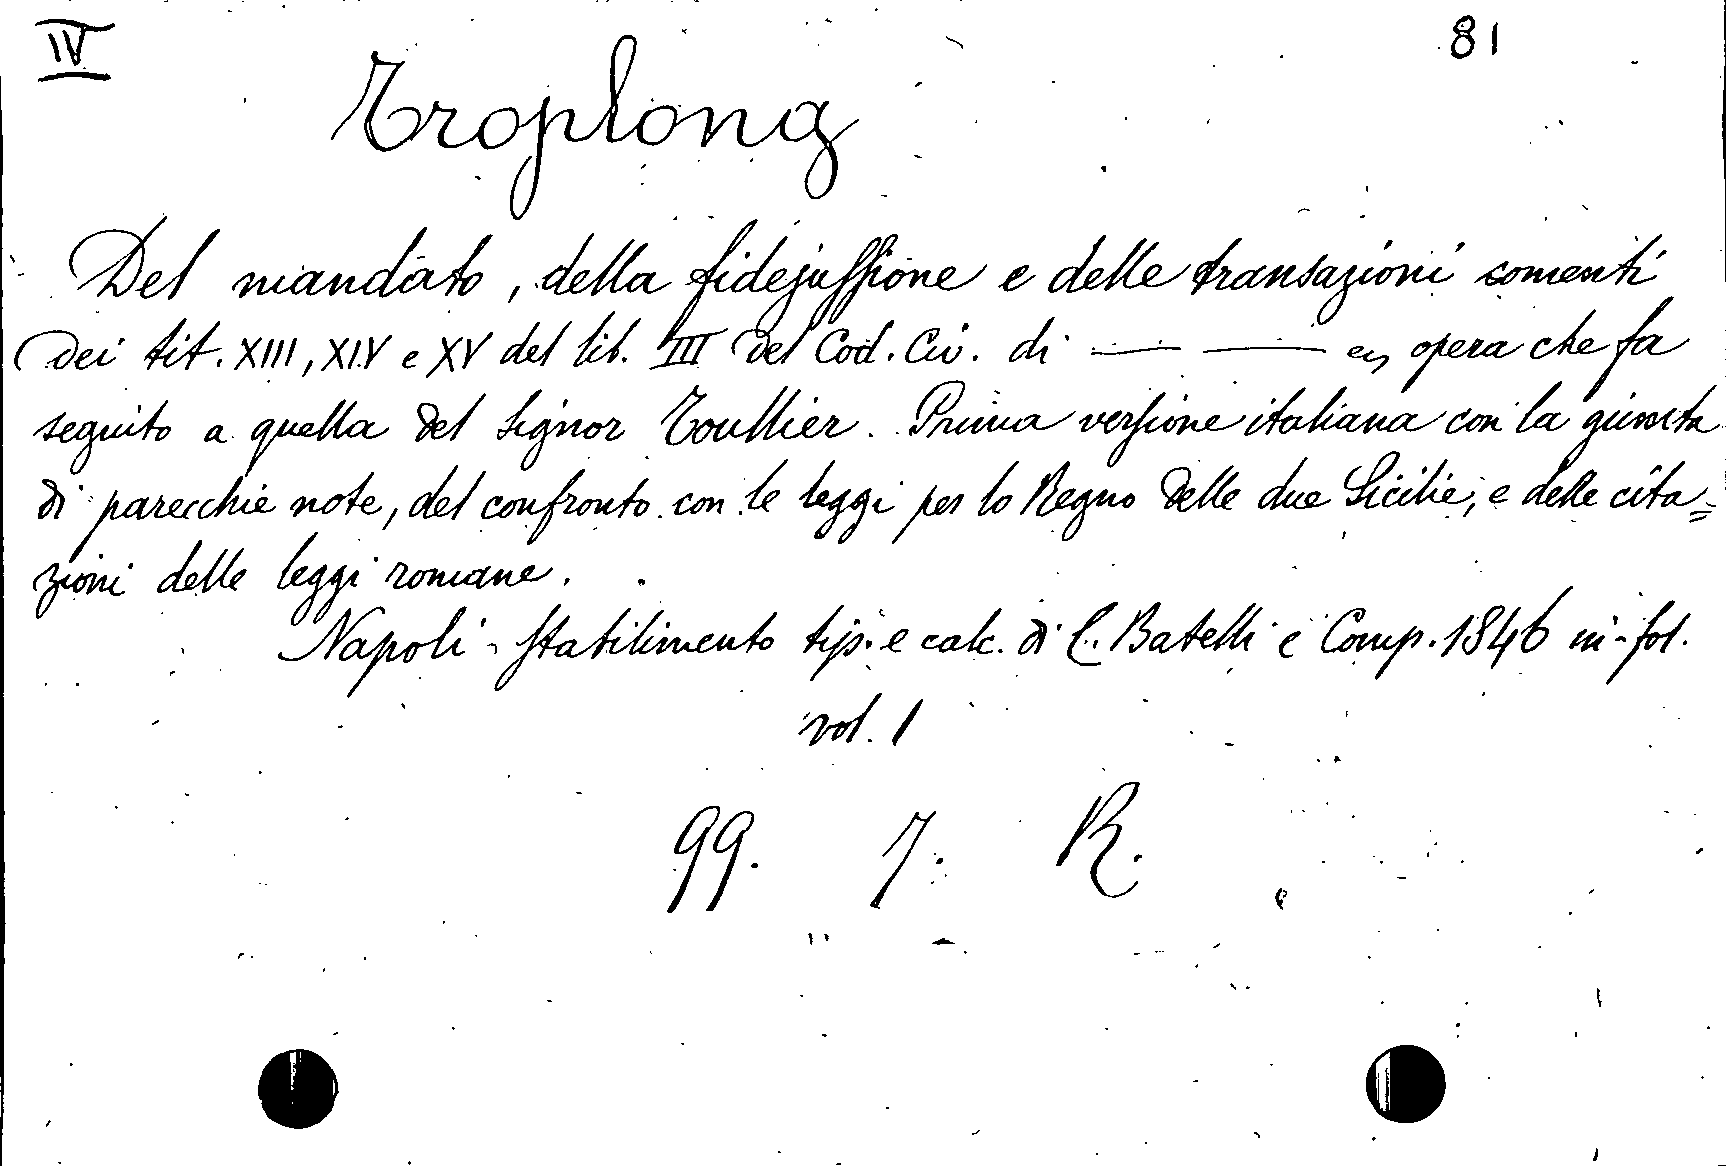 IV 81
Troplong
Del mandato, della fidejussione e delle transazioni comenti
dei tit. XIII, XIV e XV del lib. III del Cod. Civ. di — — opera che fa
seguito a quella del signor Toullier. Prima versione italiana con la giunta
di parecchie note, del confronto con le leggi per lo Regno delle due Sicilie, e delle cita=
zioni delle leggi romane.
Napoli - Stabilimento tip. e calc. di C. Batelli e Comp. 1846 in-fol.
vol. 1
99. 7. R.